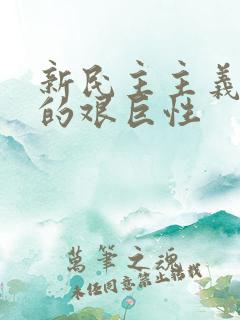 新民主主義
的艰巨性
萬筆之魂
未任同意禁止转找